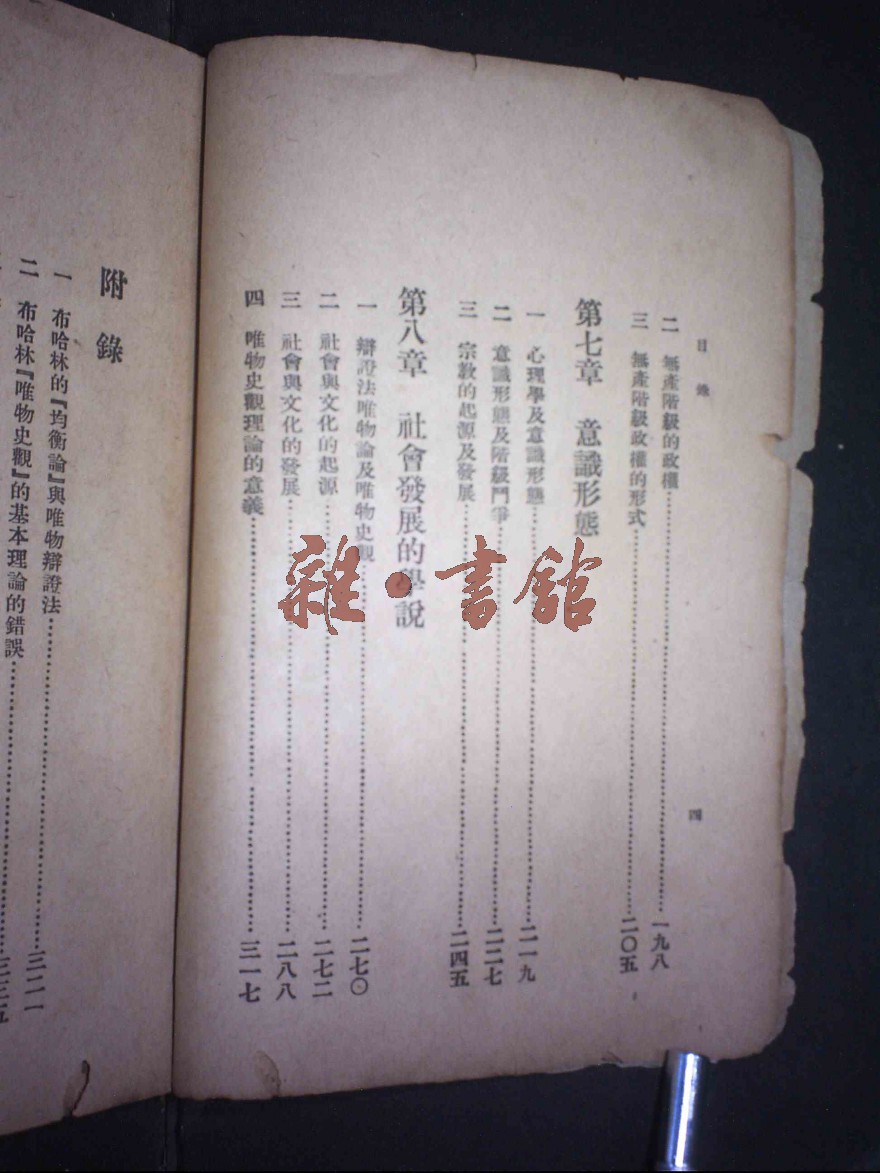 目錄
四
二　無產階級的政權……一九八
三　無產階級政權的形式……二〇五
第七章　意識形態
一　心理學及意識形態……二一九
二　意識形態及階級鬥爭……二二七
三　宗教的起源及發展……二四五
第八章　社會發展的學說
一　辯證法唯物論及唯物史觀……二七〇
二　社會與文化的起源……二七二
三　社會與文化的發展……二八八
四　唯物史觀理論的意義……三一七
附錄
一　布哈林的『均衡論』與唯物辯證法……三二一
二　布哈林『唯物史觀』的基本理論的錯誤……三三五
雜·書館